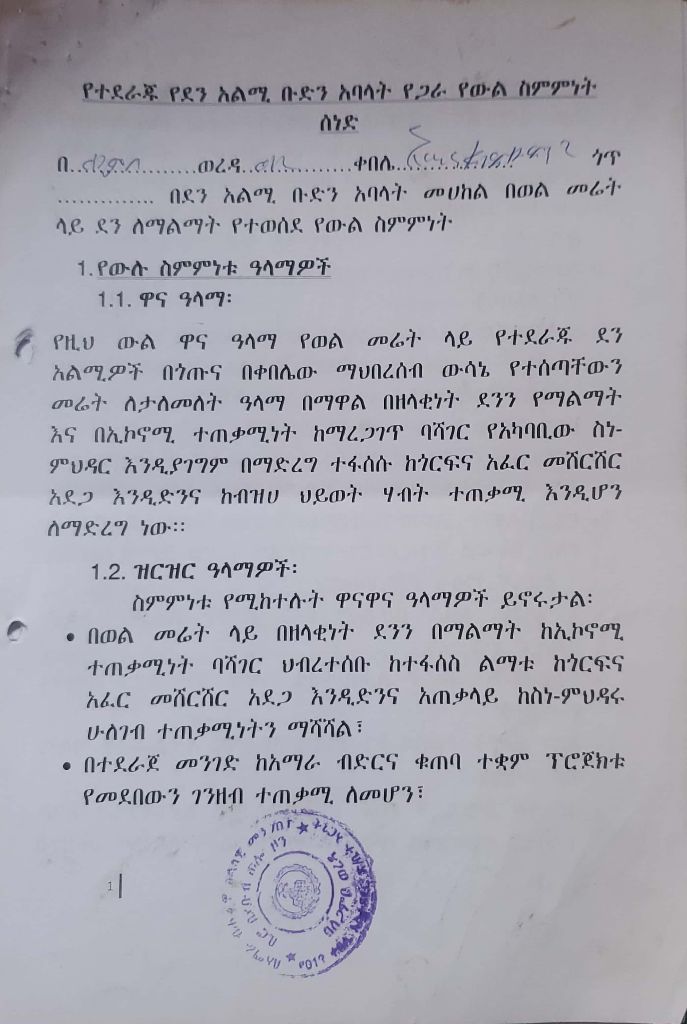 የተደራጁ የደን አልሚ ቡድን አባላት የጋራ የውል ስምምነት
ሰነድ
በ..............ወረዳ..............ቀበሌ.............. ጎጥ
.............. በደን አልሚ ቡድን አባላት መሀከል በወል መሬት
ላይ ደን ለማልማት የተወሰደ የውል ስምምነት
1. የውሉ ስምምነቱ ዓላማዎች
1.1. ዋና ዓላማ፡
የዚህ ውል ዋና ዓላማ የወል መሬት ላይ የተደራጁ ደን
አልሚዎች በጎጡና በቀበሌው ማህበረሰብ ውሳኔ የተሰጣቸውን
መሬት ለታለመለት ዓላማ በማዋል በዘላቂነት ደንን የማልማት
እና በኢኮኖሚ ተጠቃሚነት ከማረጋገጥ ባሻገር የአካባቢው ስነ-
ምህዳር እንዲያገግም በማድረግ ተፋሰሱ ከጎርፍና አፈር መሸርሸር
አደጋ እንዲድንና ከብዝሀ ህይወት ሃብት ተጠቃሚ እንዲሆን
ለማድረግ ነው፡፡
1.2. ዝርዝር ዓላማዎች፡
ስምምነቱ የሚከተሉት ዋናዋና ዓላማዎች ይኖሩታል፡
• በወል መሬት ላይ በዘላቂነት ደንን በማልማት ከኢኮኖሚ
ተጠቃሚነት ባሻገር ህብረተሰቡ ከተፋሰስ ልማቱ ከጎርፍና
አፈር መሸርሸር አደጋ እንዲድንና አጠቃላይ ከስነ-ምህዳሩ
ሁለገብ ተጠቃሚነትን ማሻሻል፣
• በተደራጀ መንገድ ከአማራ ብድርና ቁጠባ ተቋም ፕሮጀክቱ
የመደበውን ገንዘብ ተጠቃሚ ለመሆን፣
1